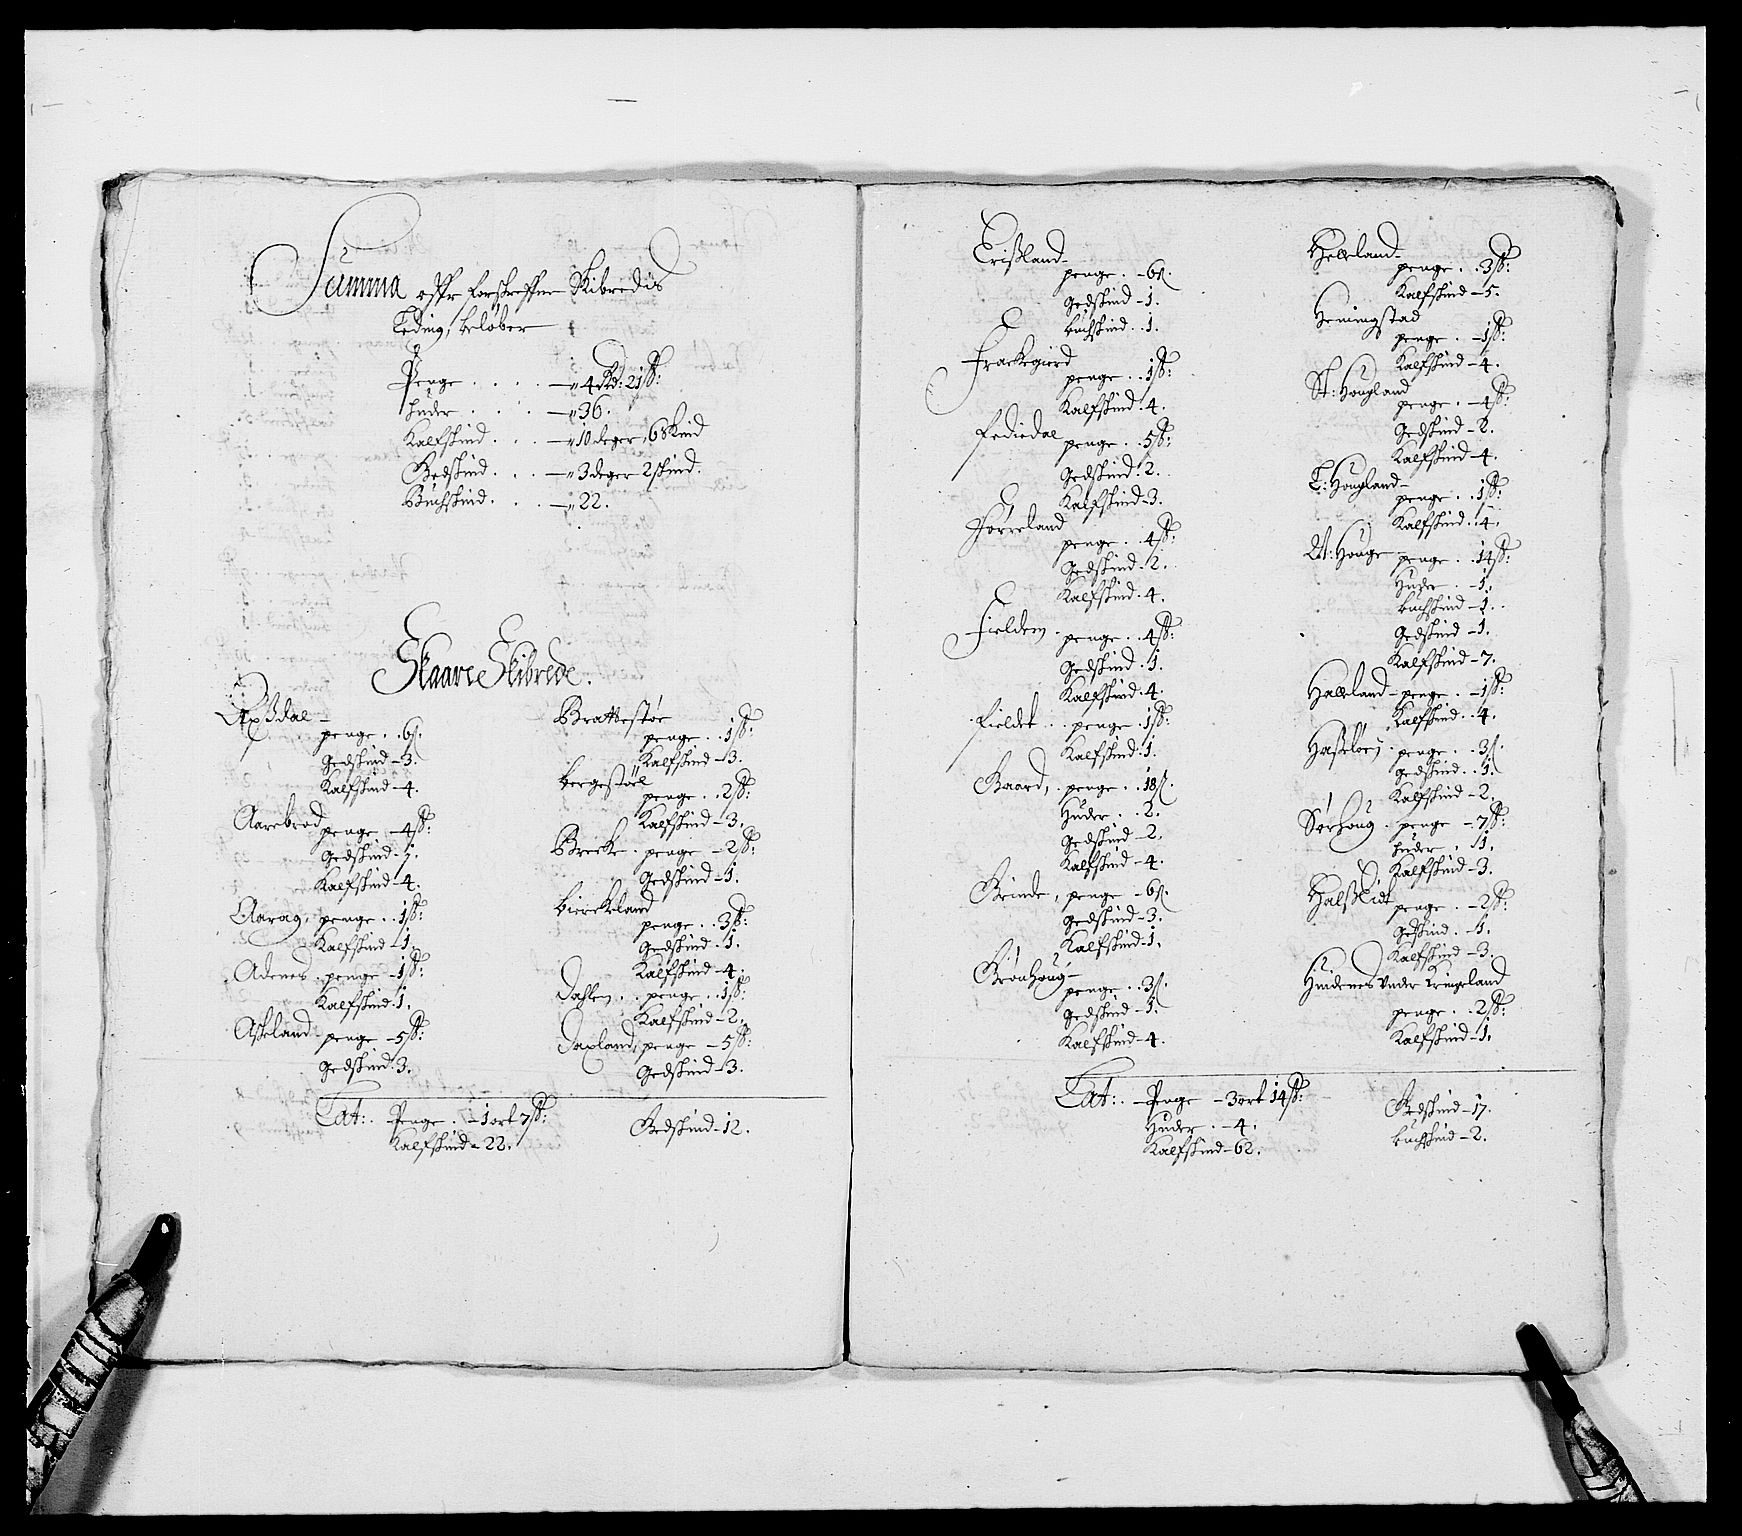 Summa offr forschreffne Skibredis
Leding, beløber
Penge . . . . — 4 Rd: 21 ß:
huder . . . — 36.
Kalfskind . . . — 10 deger, 6 Skind
Gedskind . . . — 3 deger 2 skind.
Buchskind . . . — 22.
Skaare Skibrede.
Axßdal –
penge . . 6 ß.
Gedskind – 3.
Kalfskind – 4.
Aarebrod
penge – 4 ß:
Gedskind – 1.
Kalfskind – 4.
Aarag, penge . . 1 ß:
Kalfskind – 1.
Adenes . penge – 1 ß:
Kalfskind . 1.
Asßeland – penge – 5 ß:
Gedskind . 3.
Brattestøe
penge . . 1 ß:
Kalfskind – 3.
bergestøel
penge . . 2 ß:
Kalfskind – 3.
Brecke . penge – 2 ß:
Gedskind – 1.
bierckeland
penge . . 3 ß:
Gedskind . 1.
Kalfskind – 4.
Dahlen . . penge . . 1 ß:
Kalfskind – 2.
Daxland, penge – 5 ß:
Gedskind – 3.
Lat: . Penge . – 1 ort 7 ß:
Kalfskind – 22.
Gedskind – 12.
Erißland –
penge . – 6 ß.
Gedskind – 1.
buchskind . . 1.
Frackegierd
penge . . 1 ß:
Kalfskind . 4.
fediedal
penge . . 5 ß:
Gedskind . 2.
Kalfskind – 3.
Førreland
penge . . 4 ß:
Gedskind . 2.
Kalfskind . 4.
Fielden . penge . . 4 ß:
Gedskind . 1.
Kalfskind . 4.
fieldet . . penge . 1 ß:
Kalfskind . 1.
Gaard, . penge . . 18 ß.
Huder . . 2.
Gedskind – 2.
Kalfskind – 4.
Grinde, penge – 6 ß
Gedskind – 3.
Kalfskind – 1.
Grønhoug –
penge . . 3 ß.
Gedskind – 1.
Kalfskind – 4.
Helleland –
penge . . 3 ß:
Kalfskind – 5.
Hemingstad
penge . – 1 ß:
Kalfskind – 4.
St: Hougland
penge . – 4 ß:
Gedskind – 2.
Kalfskind – 4.
L: Hougland –
penge . . 1 ß:
Kalfskind . . 4.
N: Houge – penge . . 14 ß:
Huder . – 1.
buchskind – 1.
Gedskind – 1.
Kalfskind – 7.
Halleland – penge . – 1 ß:
Kalfskind . . 4.
Haßeløej . penge . . 3 ß.
Gedskind . . 1.
Kalfskind – 2.
Sørhoug . penge – 7 ß:
huder . 1.
Kalfskind – 3.
Halßlidt
penge . – 2 ß:
Gedskind . – 1.
Kalfskind – 3.
Hindenes under Kringeland
penge . . 2 ß:
Kalfskind – 1.
Lat: . – Penge – 3 ort 14 ß:
Huder . – 4.
Kalfskind – 62.
Gedskind – 17.
buchskind – 2.